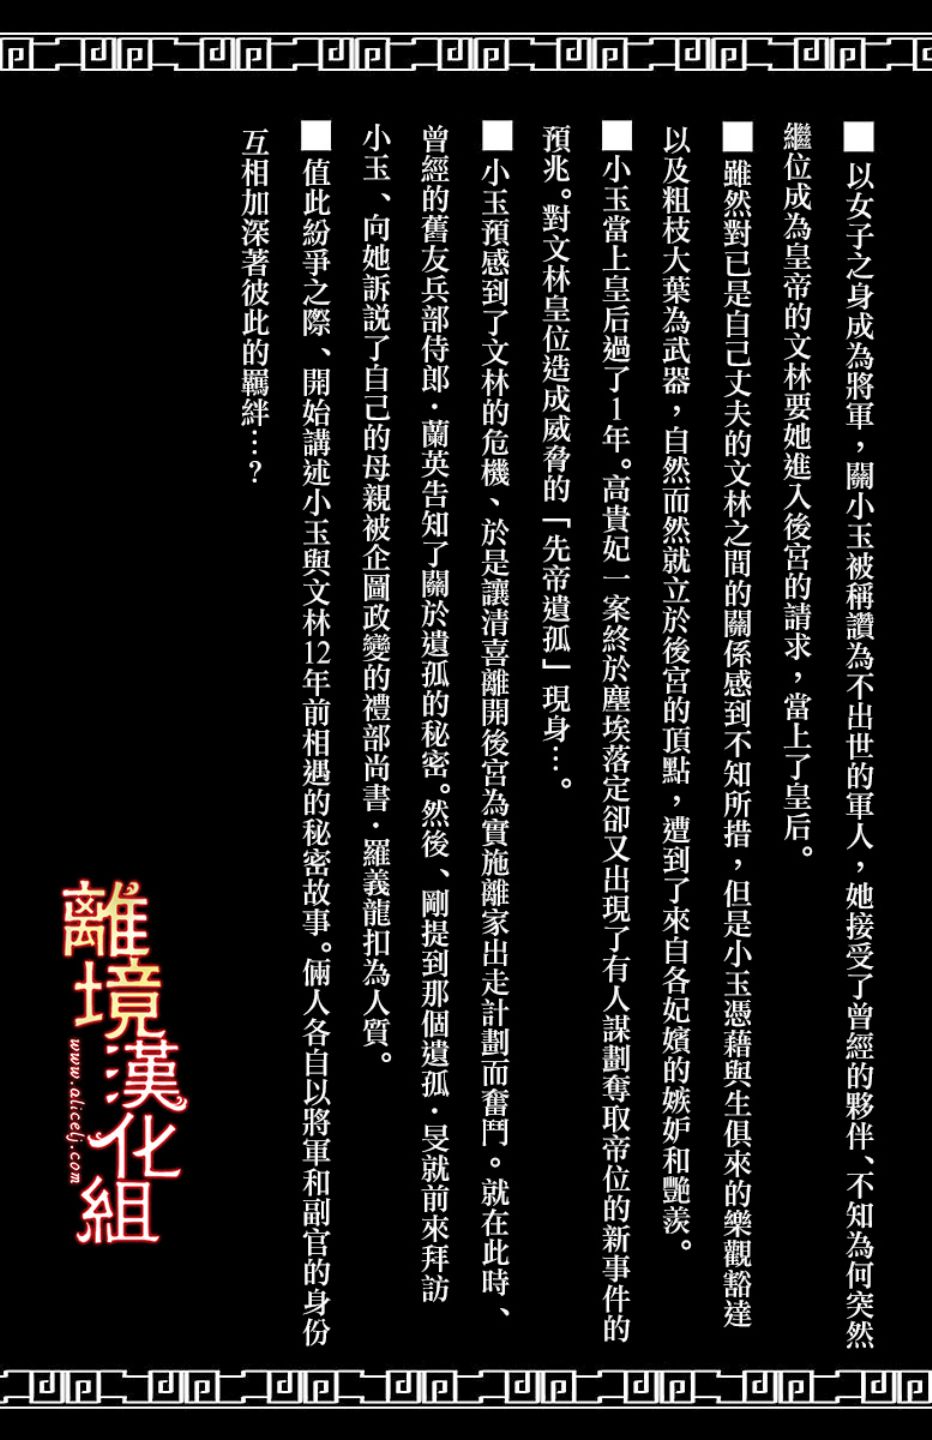 ■以女子之身成為將軍，關小玉被稱讚為不出世的軍人，她接受了曾經的夥伴、不知為何突然
繼位成為皇帝的文林要她進入後宮的請求，當上了皇后。
■雖然對已是自己丈夫的文林之間的關係感到不知所措，但是小玉憑藉與生俱來的樂觀豁達
以及粗枝大葉為武器，自然而然就立於後宮的頂點，遭到了來自各妃嬪的嫉妒和艷羨。
■小玉當上皇后過了1年。高貴妃一案終於塵埃落定卻又出現了有人謀劃奪取帝位的新事件的
預兆。對文林皇位造成威脅的「先帝遺孤」現身…。
■小玉預感到了文林的危機、於是讓清喜離開後宮為實施離家出走計劃而奮鬥。就在此時、
曾經的舊友兵部侍郎・蘭英告知了關於遺孤的秘密。然後、剛提到那個遺孤・旻就前來拜訪
小玉、向她訴説了自己的母親被企圖政變的禮部尚書・羅義龍扣為人質。
■值此紛爭之際、開始講述小玉與文林12年前相遇的秘密故事。倆人各自以將軍和副官的身份
互相加深著彼此的羈絆…？
離境漢化組
www.alicelj.com